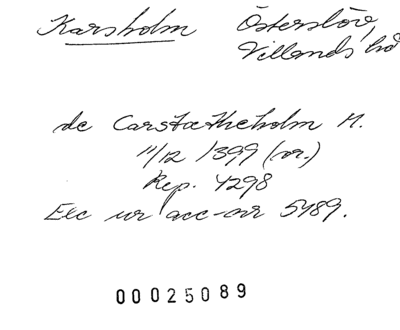 Karsholm Österslöv,
Villands hd
de Carstætheholm H.
11/12 1399 (or.)
Rep. 4298
Exc ur acc-nr 5489.
00025089